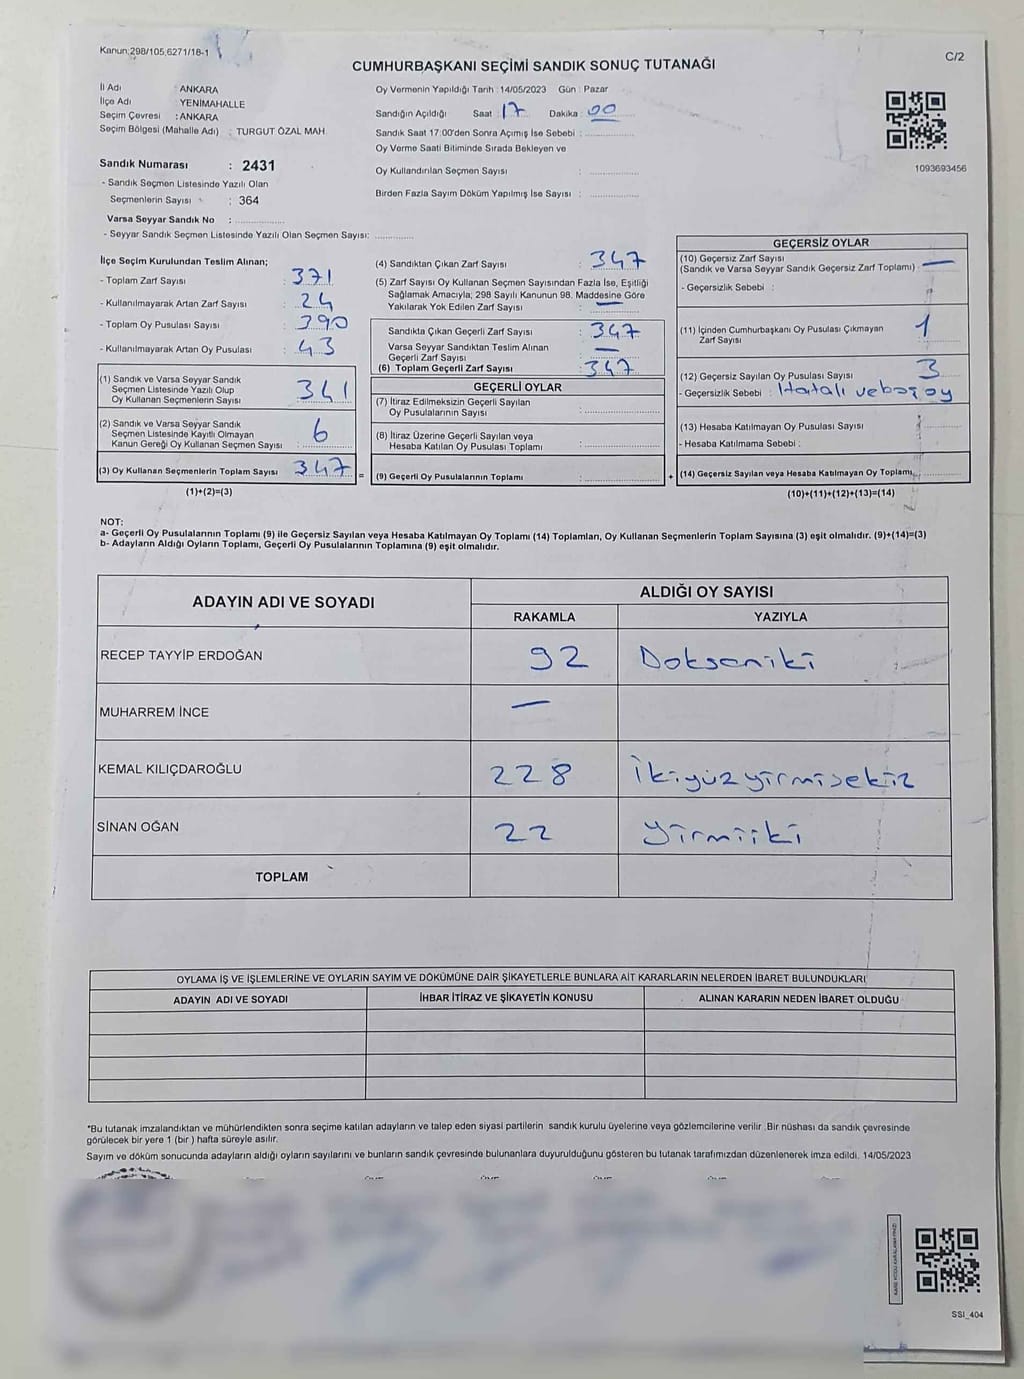 Kanun:298/105,6271/18-1
C/2
CUMHURBAŞKANI SEÇİMİ SANDIK SONUÇ TUTANAĞI
İl Adı : ANKARA
İlçe Adı : YENİMAHALLE
Seçim Çevresi : ANKARA
Seçim Bölgesi (Mahalle Adı) : TURGUT ÖZAL MAH.
Oy Vermenin Yapıldığı Tarih : 14/05/2023 Gün : Pazar
Sandığın Açıldığı Saat : 17 Dakika : 00
Sandık Saat 17:00'den Sonra Açımış İse Sebebi :
Oy Verme Saati Bitiminde Sırada Bekleyen ve
Oy Kullandırılan Seçmen Sayısı :
Birden Fazla Sayım Döküm Yapılmış İse Sayısı :
1093693456
Sandık Numarası : 2431
- Sandık Seçmen Listesinde Yazılı Olan
Seçmenlerin Sayısı : 364
Varsa Seyyar Sandık No :
- Seyyar Sandık Seçmen Listesinde Yazılı Olan Seçmen Sayısı:
İlçe Seçim Kurulundan Teslim Alınan;
- Toplam Zarf Sayısı : 371
- Kullanılmayarak Artan Zarf Sayısı : 24
- Toplam Oy Pusulası Sayısı : 390
- Kullanılmayarak Artan Oy Pusulası : 43
(1) Sandık ve Varsa Seyyar Sandık
Seçmen Listesinde Yazılı Olup
Oy Kullanan Seçmenlerin Sayısı : 341
(2) Sandık ve Varsa Seyyar Sandık
Seçmen Listesinde Kayıtlı Olmayan
Kanun Gereği Oy Kullanan Seçmen Sayısı : 6
(3) Oy Kullanan Seçmenlerin Toplam Sayısı 347 =
(1)+(2)=(3)
(4) Sandıktan Çıkan Zarf Sayısı : 347
(5) Zarf Sayısı Oy Kullanan Seçmen Sayısından Fazla İse, Eşitliği
Sağlamak Amacıyla; 298 Sayılı Kanunun 98. Maddesine Göre
Yakılarak Yok Edilen Zarf Sayısı : —
Sandıkta Çıkan Geçerli Zarf Sayısı : 347
Varsa Seyyar Sandıktan Teslim Alınan
Geçerli Zarf Sayısı : —
(6) Toplam Geçerli Zarf Sayısı : 347
GEÇERLİ OYLAR
(7) İtiraz Edilmeksizin Geçerli Sayılan
Oy Pusulalarının Sayısı :
(8) İtiraz Üzerine Geçerli Sayılan veya
Hesaba Katılan Oy Pusulası Toplamı :
(9) Geçerli Oy Pusulalarının Toplamı : +
GEÇERSİZ OYLAR
(10) Geçersiz Zarf Sayısı
(Sandık ve Varsa Seyyar Sandık Geçersiz Zarf Toplamı) : —
- Geçersizlik Sebebi :
(11) İçinden Cumhurbaşkanı Oy Pusulası Çıkmayan
Zarf Sayısı : 1
(12) Geçersiz Sayılan Oy Pusulası Sayısı : 3
- Geçersizlik Sebebi : Hatalı ve boş oy
(13) Hesaba Katılmayan Oy Pusulası Sayısı :
- Hesaba Katılmama Sebebi :
(14) Geçersiz Sayılan veya Hesaba Katılmayan Oy Toplamı
(10)+(11)+(12)+(13)=(14)
NOT:
a- Geçerli Oy Pusulalarının Toplamı (9) ile Geçersiz Sayılan veya Hesaba Katılmayan Oy Toplamı (14) Toplamları, Oy Kullanan Seçmenlerin Toplam Sayısına (3) eşit olmalıdır. (9)+(14)=(3)
b- Adayların Aldığı Oyların Toplamı, Geçerli Oy Pusulalarının Toplamına (9) eşit olmalıdır.
ADAYIN ADI VE SOYADI
ALDIĞI OY SAYISI
RAKAMLA YAZIYLA
RECEP TAYYİP ERDOĞAN 92 Doksaniki
MUHARREM İNCE —
KEMAL KILIÇDAROĞLU 228 İkiyüzyirmisekiz
SİNAN OĞAN 22 Yirmiiki
TOPLAM
OYLAMA İŞ VE İŞLEMLERİNE VE OYLARIN SAYIM VE DÖKÜMÜNE DAİR ŞİKAYETLERLE BUNLARA AİT KARARLARIN NELERDEN İBARET BULUNDUKLARI
ADAYIN ADI VE SOYADI İHBAR İTİRAZ VE ŞİKAYETİN KONUSU ALINAN KARARIN NEDEN İBARET OLDUĞU
*Bu tutanak imzalandıktan ve mühürlendikten sonra seçime katılan adayların ve talep eden siyasi partilerin sandık kurulu üyelerine veya gözlemcilerine verilir .Bir nüshası da sandık çevresinde
görülecek bir yere 1 (bir ) hafta süreyle asılır.
Sayım ve döküm sonucunda adayların aldığı oyların sayılarını ve bunların sandık çevresinde bulunanlara duyurulduğunu gösteren bu tutanak tarafımızdan düzenlenerek imza edildi. 14/05/2023
SSI_404